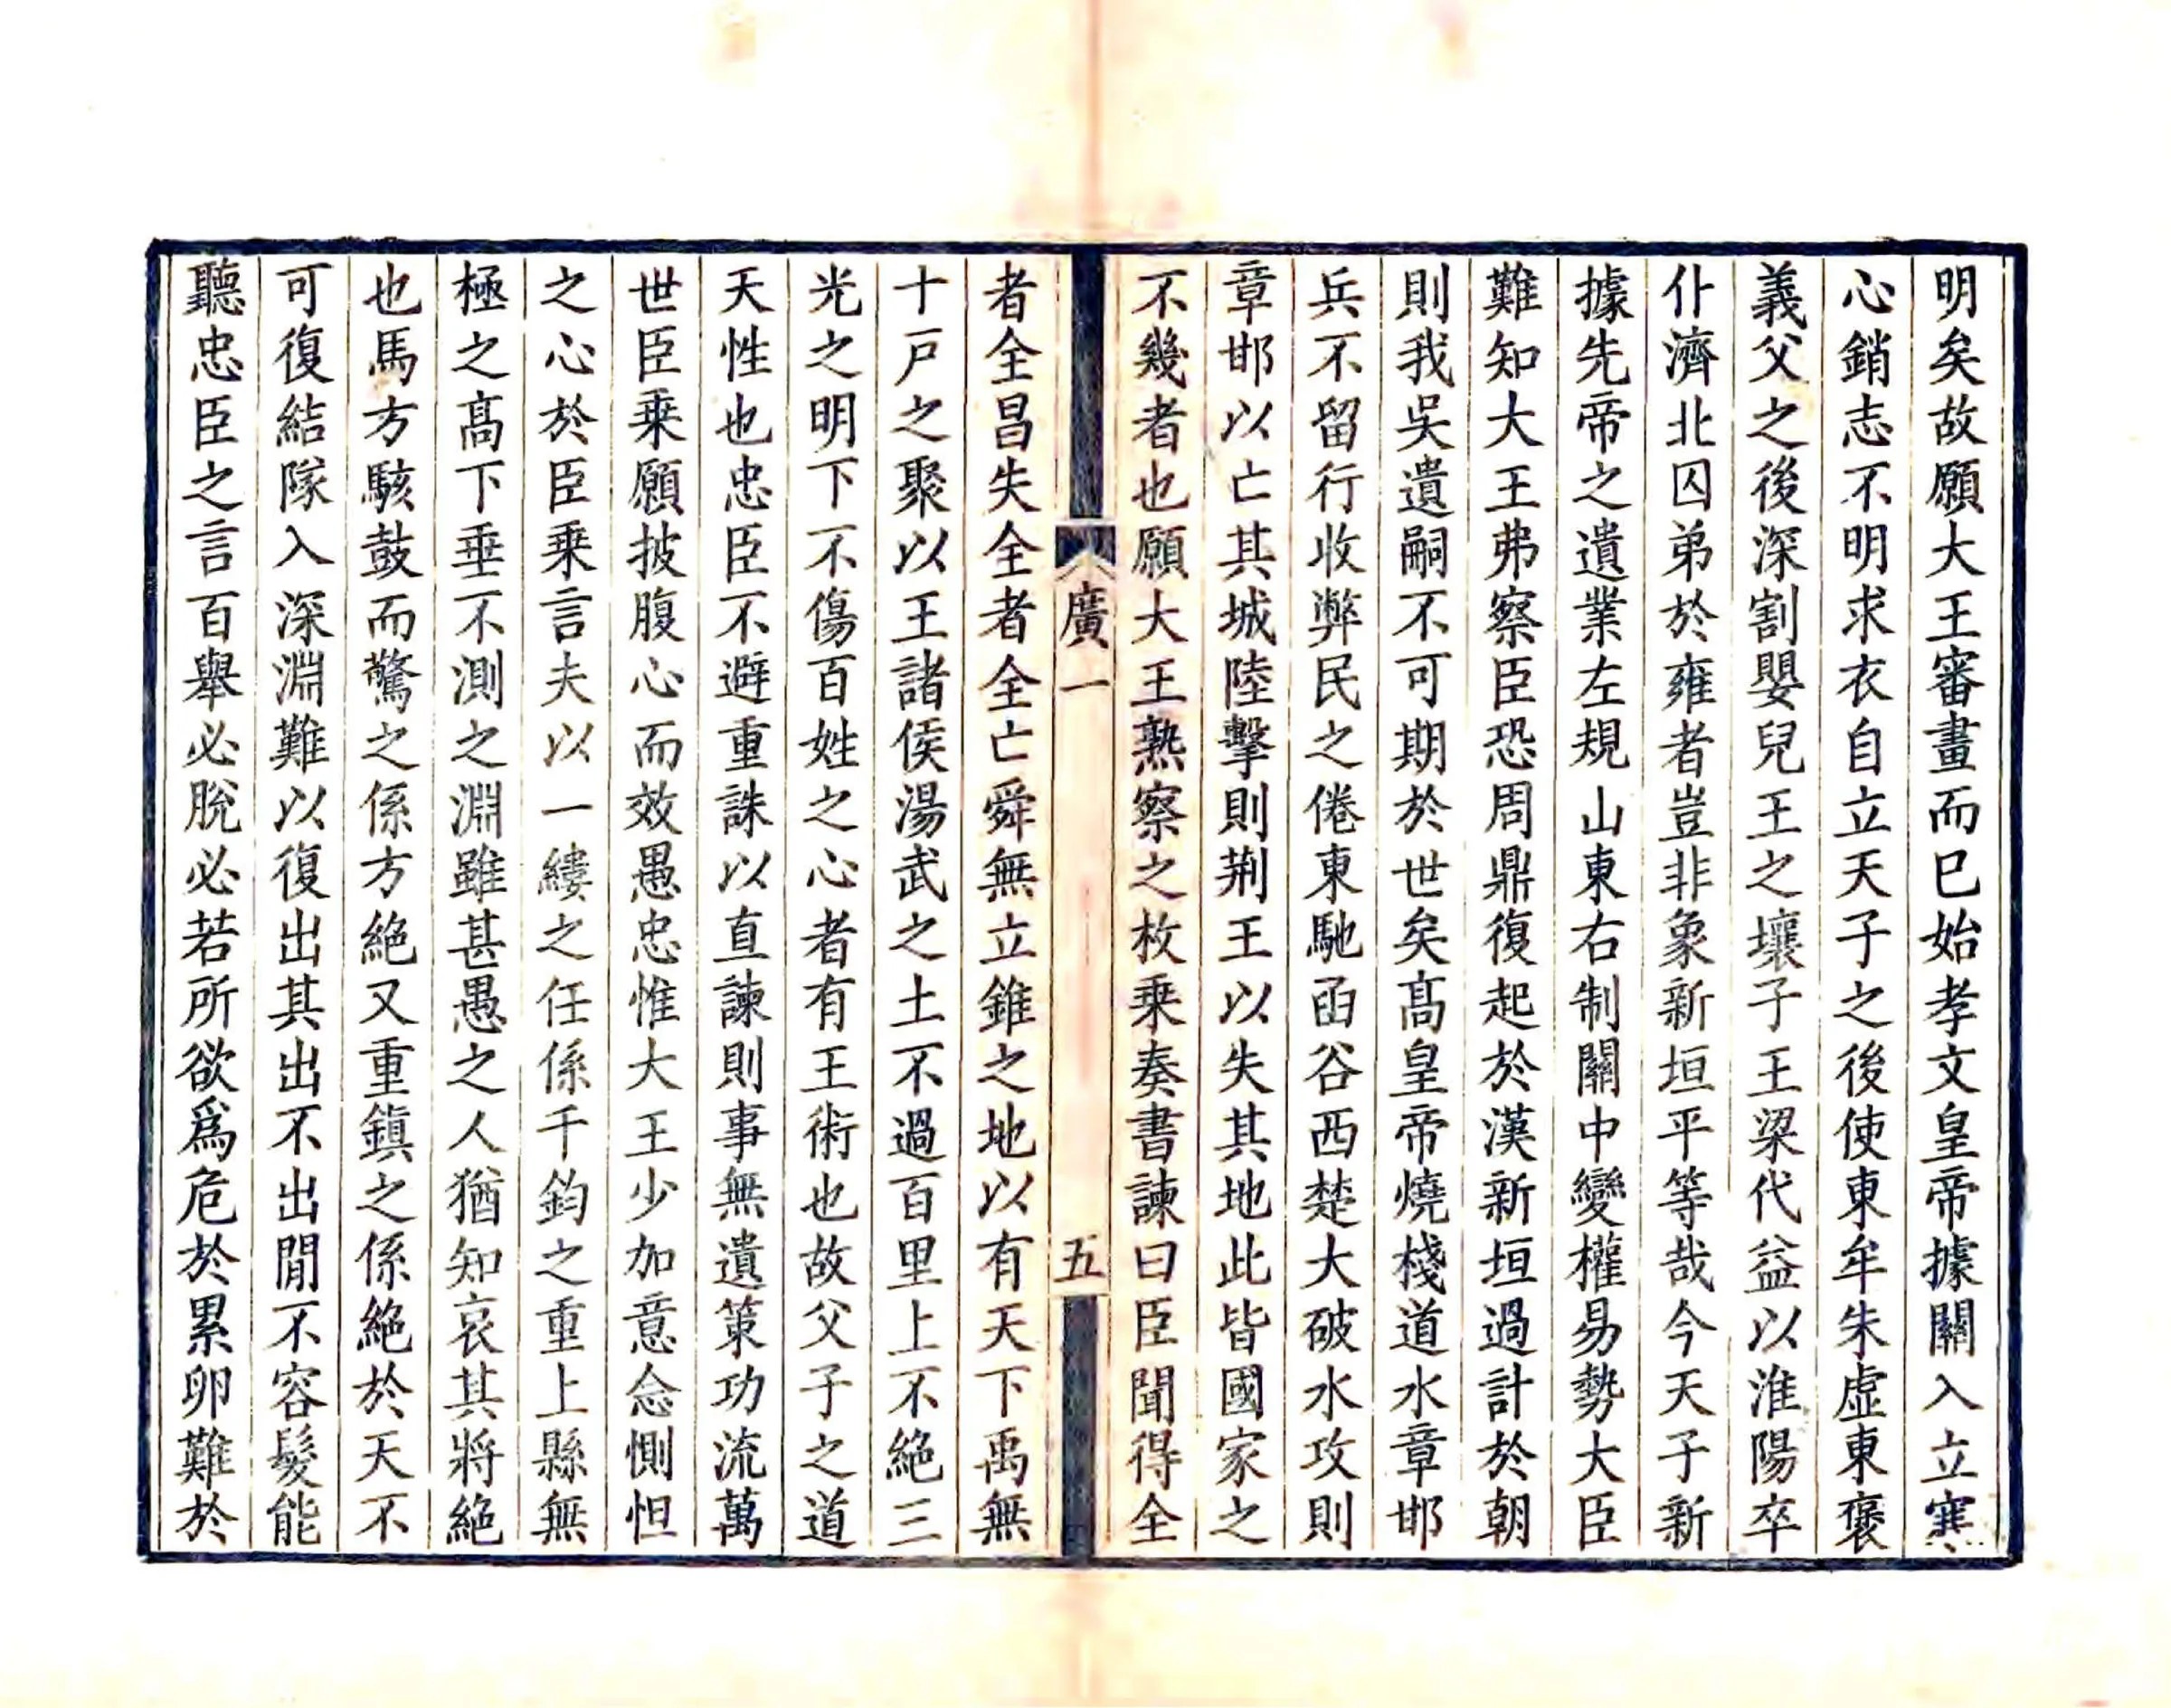 明矣故願大王審畫而已始孝文皇帝據關入立寒
心銷志不明求衣自立天子之後使東牟朱虛東褒
義父之後深割嬰兒王之壤子王梁代益以淮陽卒
仆濟北囚弟於雍者豈非象新垣平等哉今天子新
據先帝之遺業左規山東右制關中變權易勢大臣
難知大王弗察臣恐周鼎復起於漢新垣過計於朝
則我吳遺嗣不可期於世矣髙皇帝燒棧道水章邯
兵不留行收弊民之倦東馳函谷西楚大破水攻則
章邯以亡其城陸擊則荆王以失其地此皆國家之
不幾者也願大王熟察之枚乗奏書諫曰臣聞得全
廣一
五
者全昌失全者全亡舜無立錐之地以有天下禹無
十戸之聚以王諸侯湯武之土不過百里上不絶三
光之明下不傷百姓之心者有王術也故父子之道
天性也忠臣不避重誅以直諫則事無遺策功流萬
世臣乗願披腹心而效愚忠惟大王少加意念惻怛
之心於臣乗言夫以一縷之任係千鈞之重上縣無
極之髙下垂不測之淵雖甚愚之人猶知哀其將絶
也馬方駭鼓而驚之係方絶又重鎮之係絶於天不
可復結隊入深淵難以復出其出不出閒不容髮能
聽忠臣之言百舉必脫必若所欲爲危於累卵難於